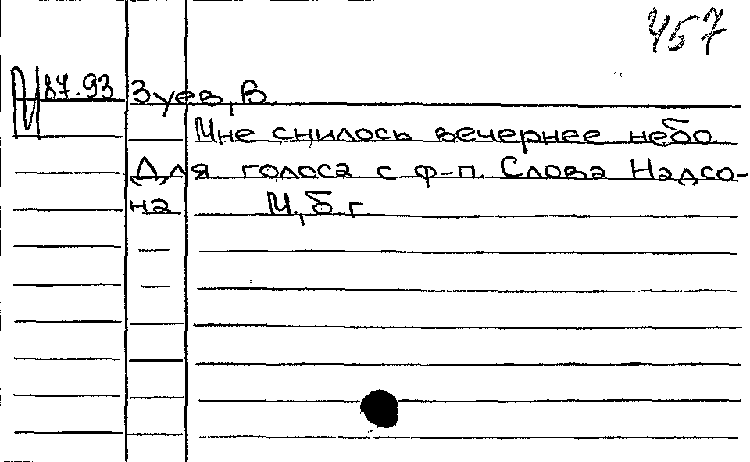 457
87.93 Зуев, В.
Мне снилось вечернее небо
Для голоса с ф-п. Слова Надсо-
на М, б.г.